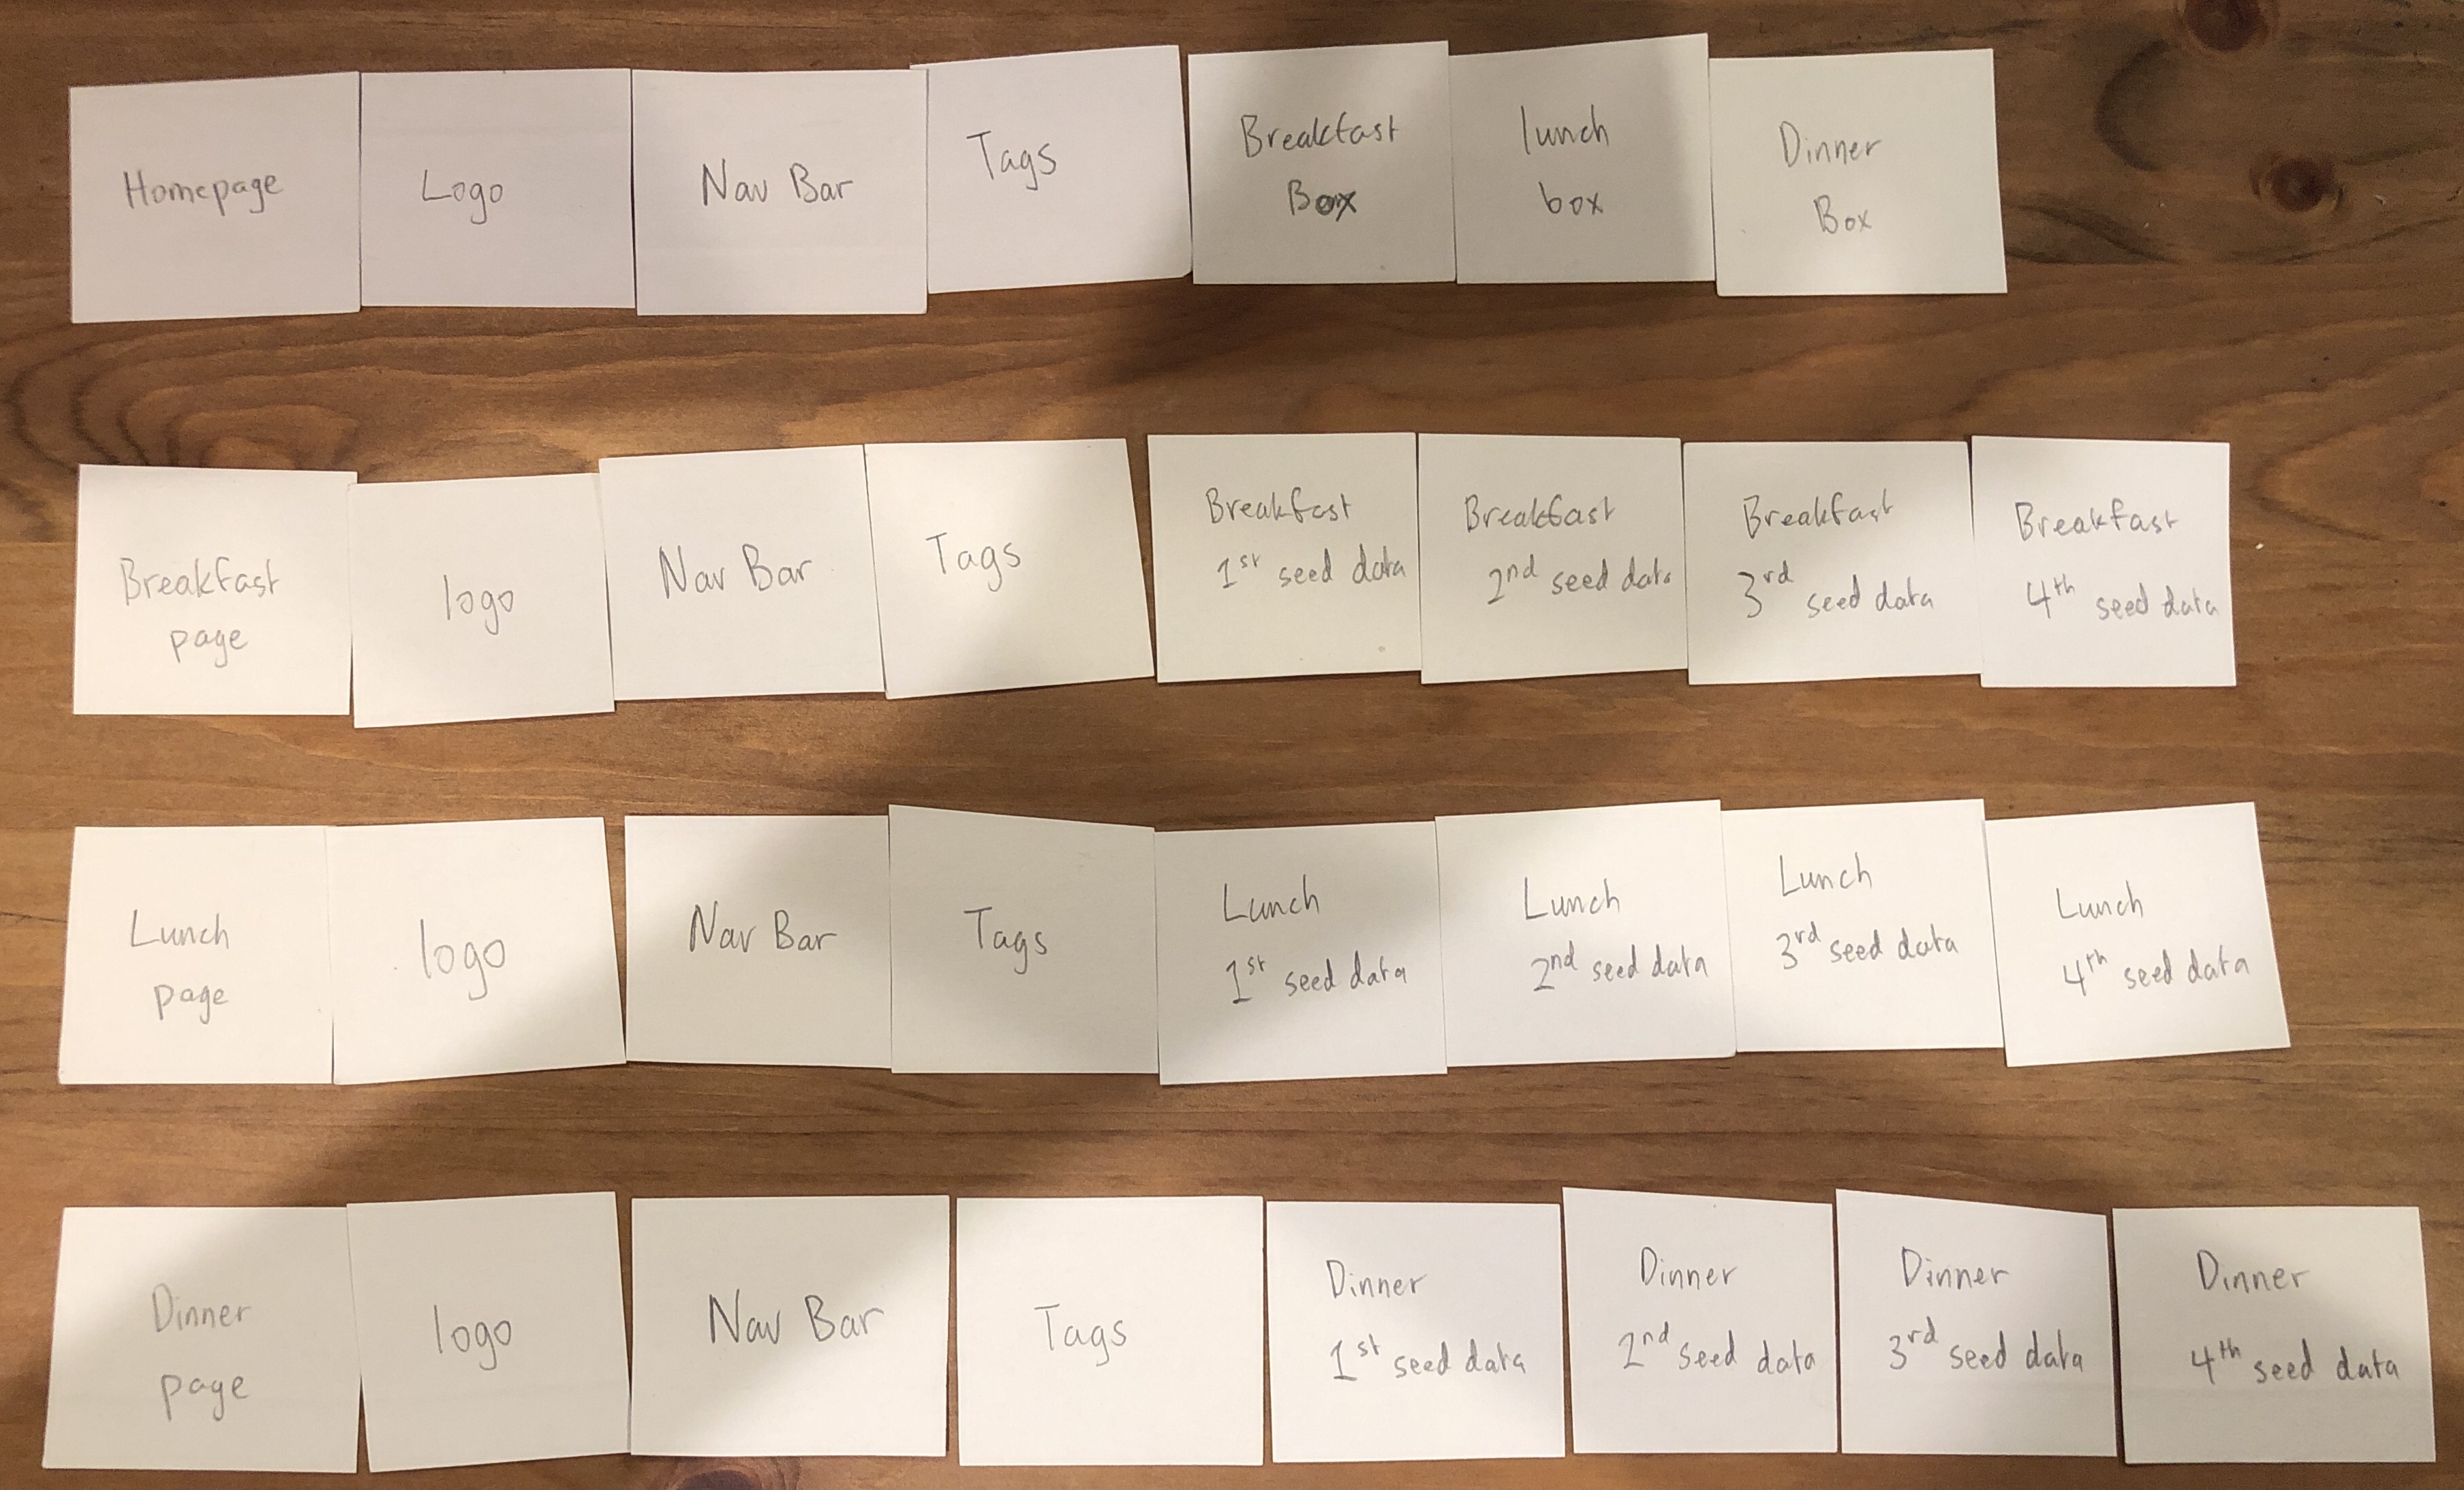 Homepage
Logo
Nav Bar
Tags
Breakfast
Box
lunch
box
Dinner
Box
Breakfast
page
logo
Nav Bar
Tags
Breakfast
1st seed data
Breakfast
2nd seed data
Breakfast
3rd seed data
Breakfast
4th seed data
Lunch
page
logo
Nav Bar
Tags
Lunch
1st seed data
Lunch
2nd seed data
Lunch
3rd seed data
Lunch
4th seed data
Dinner
page
logo
Nav Bar
Tags
Dinner
1st seed data
Dinner
2nd seed data
Dinner
3rd seed data
Dinner
4th seed data